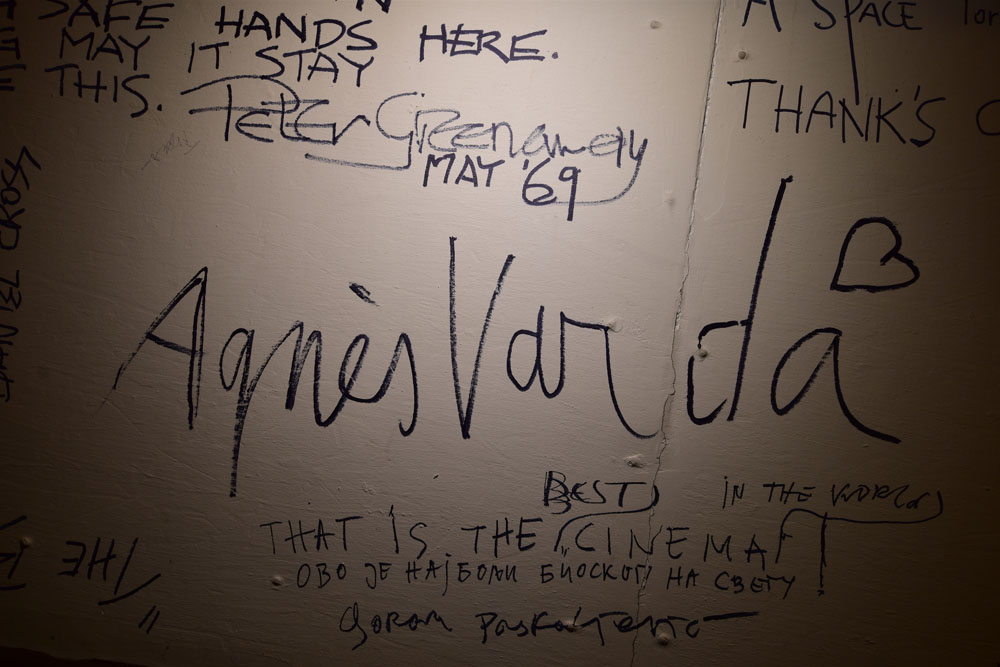 SAFE HANDS HERE.
MAY IT STAY
THIS.
Peter Greenaway
MAY '69
A SPACE
THANK'S
Agnès Varda
BEST IN THE WORLD
THAT IS THE CINEMA!
ОВО ЈЕ НАЈБОЉИ БИОСКОП НА СВЕТУ
Goran Paskaljević
THE